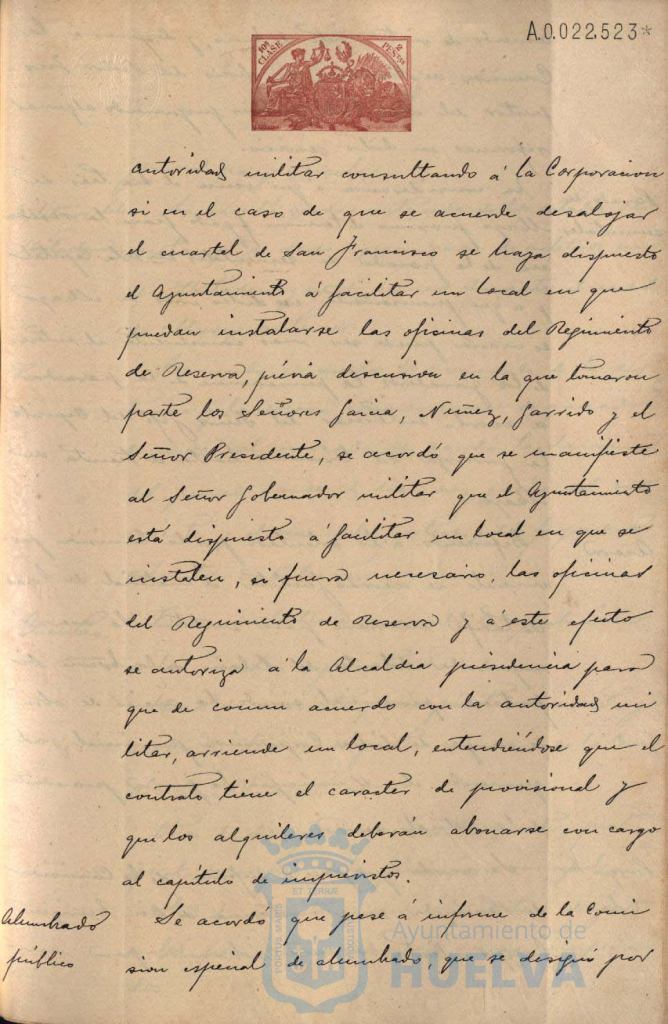 A.0.022.523*
10ª CLASE
2 PESETAS
autoridad militar consultando á la Corporacion
si en el caso de que se acuerde desalojar
el cuartel de San Francisco se haya dispuesto
el Ayuntamiento á facilitar un local en que
puedan instalarse las oficinas del Regimiento
de Reserva, prévia discusion en la que tomaron
parte los Señores Garcia, Nuñez, Garrido y el
Señor Presidente, se acordó que se manifieste
al Señor Gobernador militar que el Ayuntamiento
está dispuesto á facilitar un local en que se
instalen, si fuera necesario, las oficinas
del Regimiento de Reserva y á este efecto
se autoriza á la Alcaldia presidencia para
que de comun acuerdo con la autoridad mi
litar, arriende un local, entendiéndose que el
contrato tiene el caracter de provisional y
que los alquileres deberán abonarse con cargo
al capítulo de imprevistos.
Alumbrado
público
Se acordó que pase á informe de la Comi
sion especial de alumbrado, que se designó por
Ayuntamiento de
HUELVA